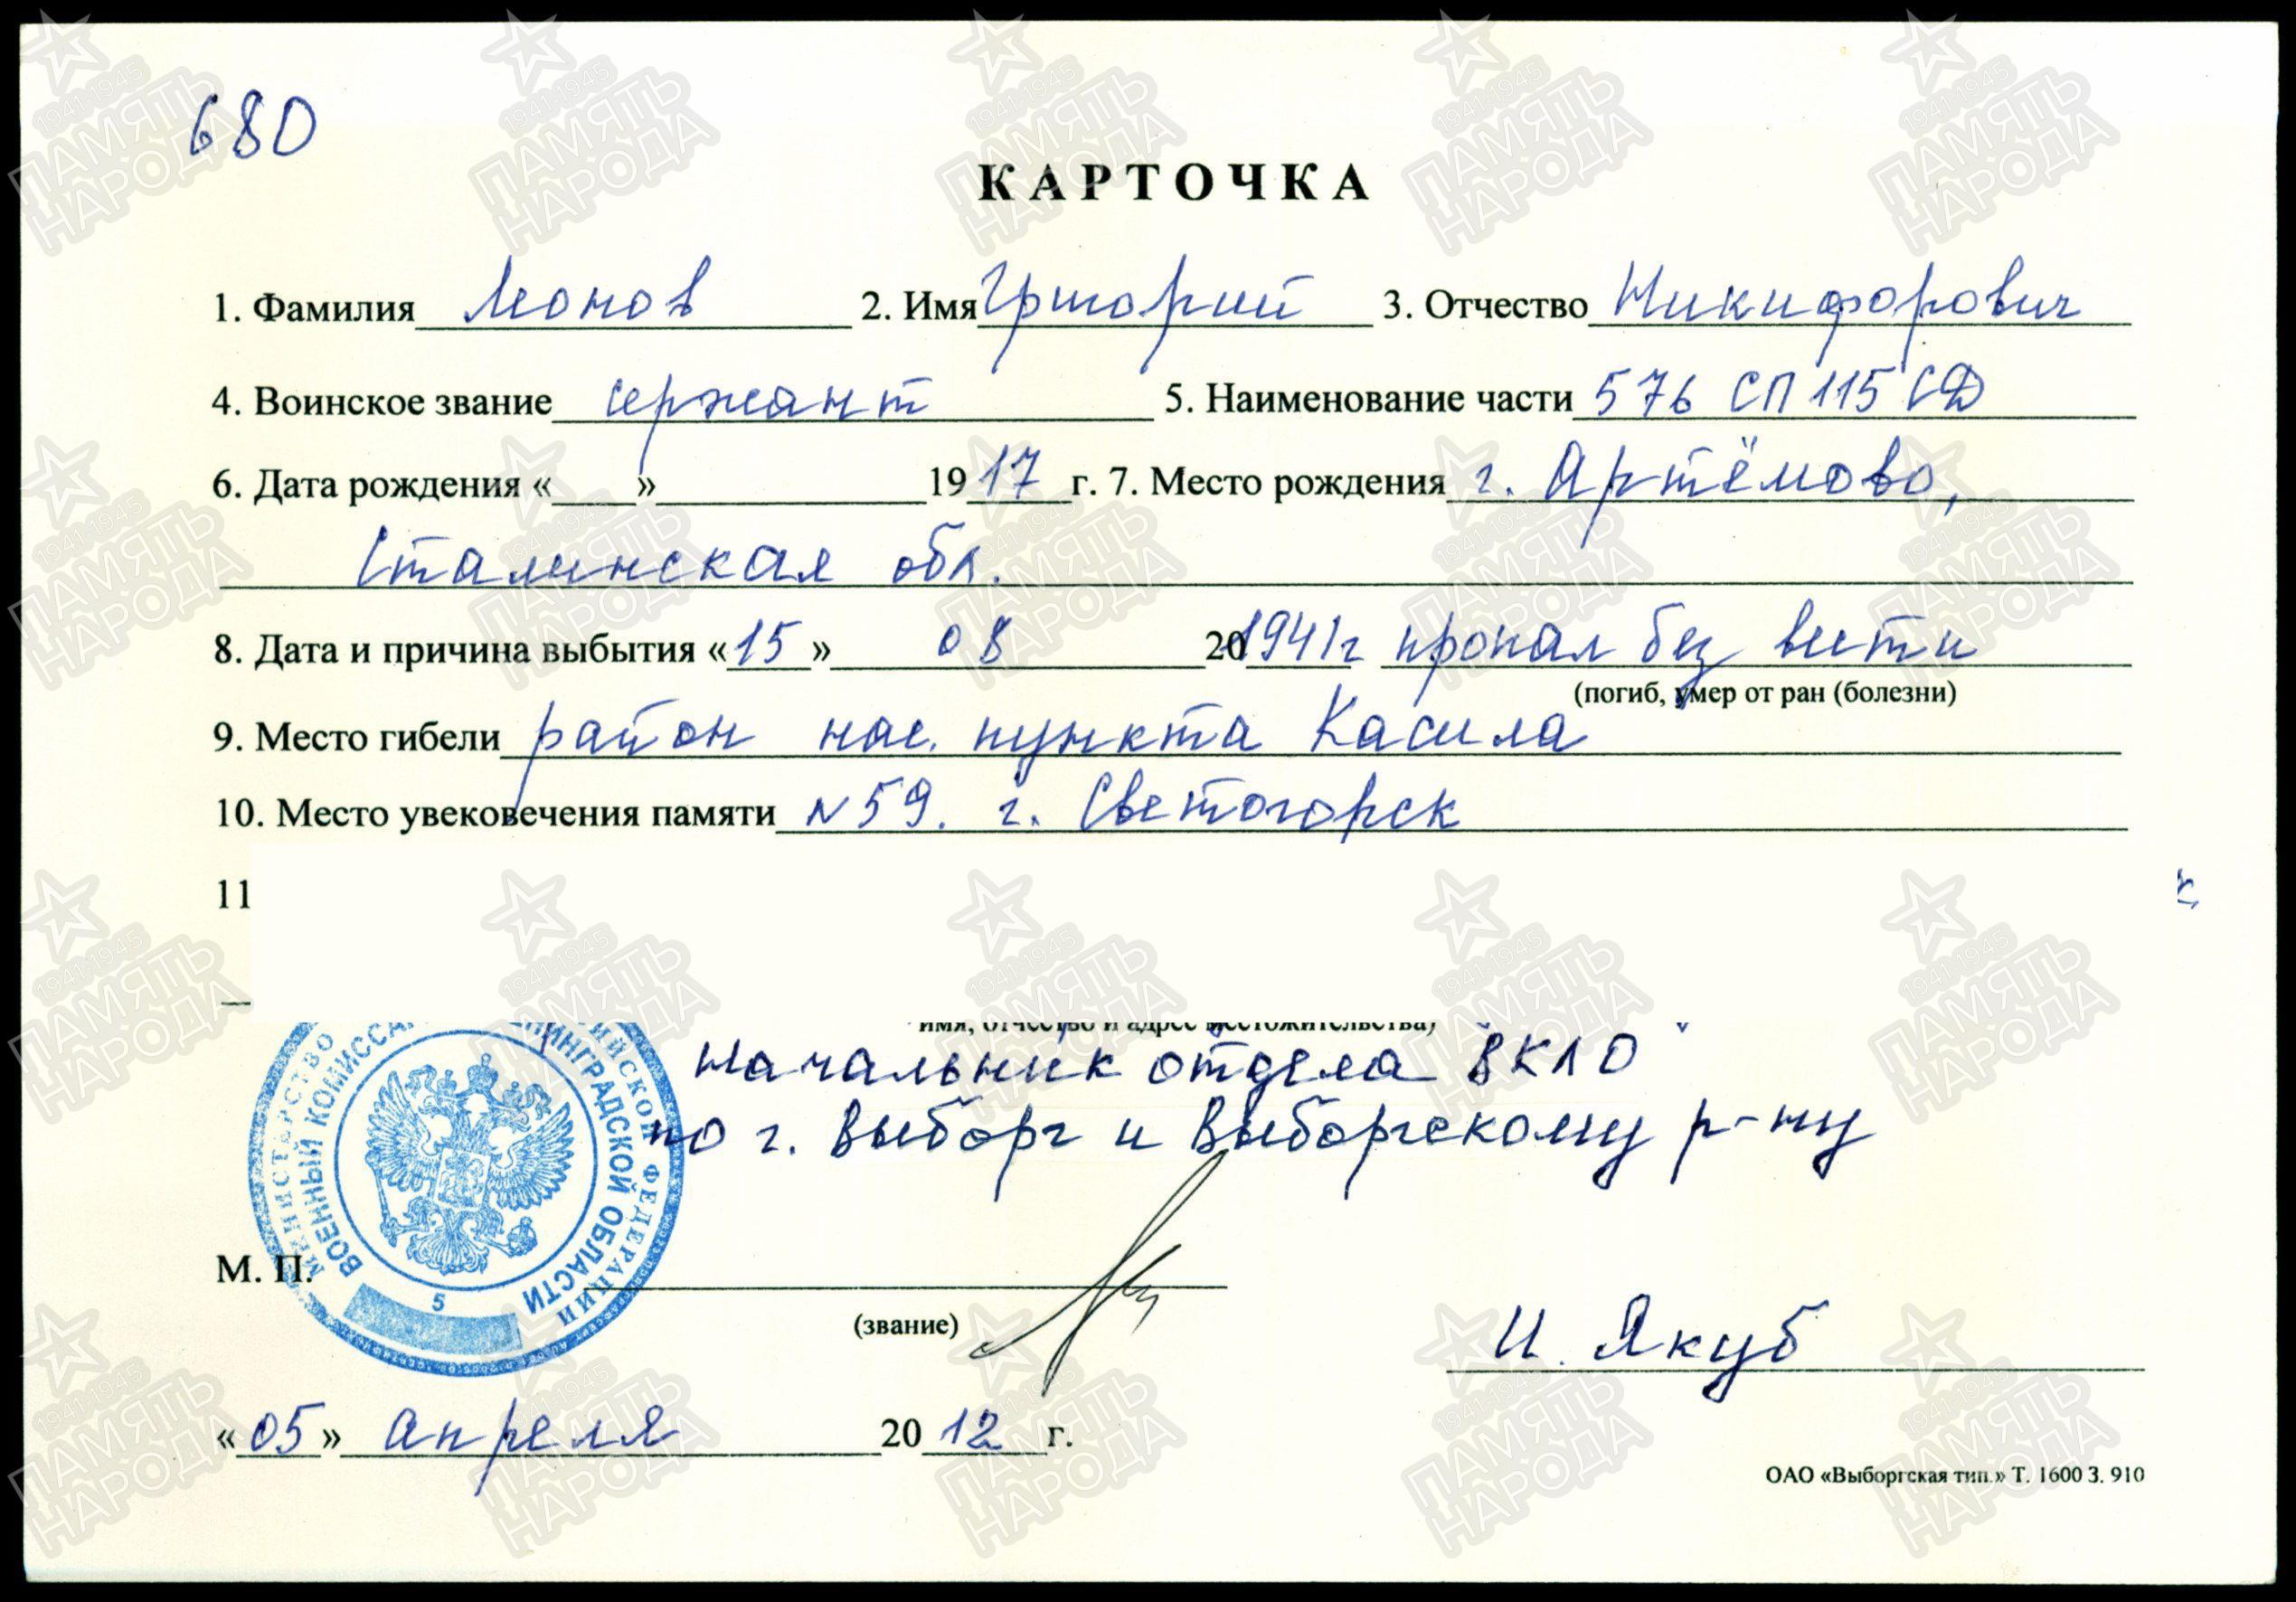 680
КАРТОЧКА
1. Фамилия Леонов 2. Имя Григорий 3. Отчество Никифорович
4. Воинское звание сержант 5. Наименование части 576 СП 115 СД
6. Дата рождения «    » 1917 г. 7. Место рождения г. Артёмово,
Сталинская обл.
8. Дата и причина выбытия «15» 08 201941г пропал без вести
(погиб, умер от ран (болезни)
9. Место гибели район нас. пункта Касила
10. Место увековечения памяти N59. г. Светогорск
11
имя, отчество и адрес местожительства)
Начальник отдела ВКЛО
по г. Выборг и Выборгскому р-ну
МИНИСТЕРСТВО РОССИЙСКОЙ ФЕДЕРАЦИИ
ВОЕННЫЙ КОМИССАРИАТ ЛЕНИНГРАДСКОЙ ОБЛАСТИ
5
М. П.
(звание)
И. Якуб
«05» апреля 2012 г.
ОАО «Выборгская тип.» Т. 1600 З. 910
1941-1945
ПАМЯТЬ
НАРОДА